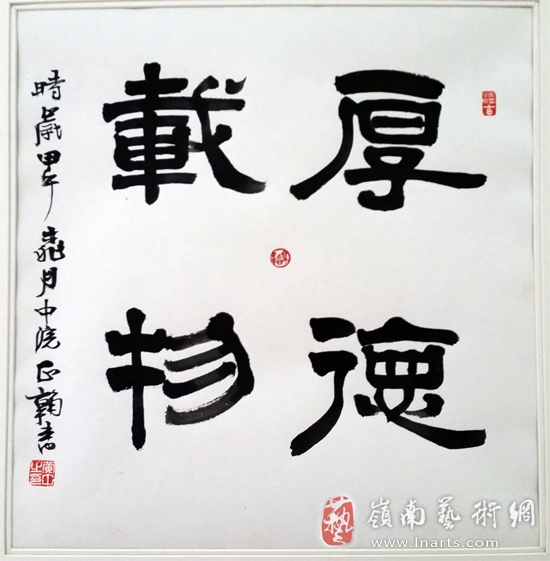 厚德
載物
時歲甲午月中浣正書
藝
嶺南藝術網
www.lnarts.com